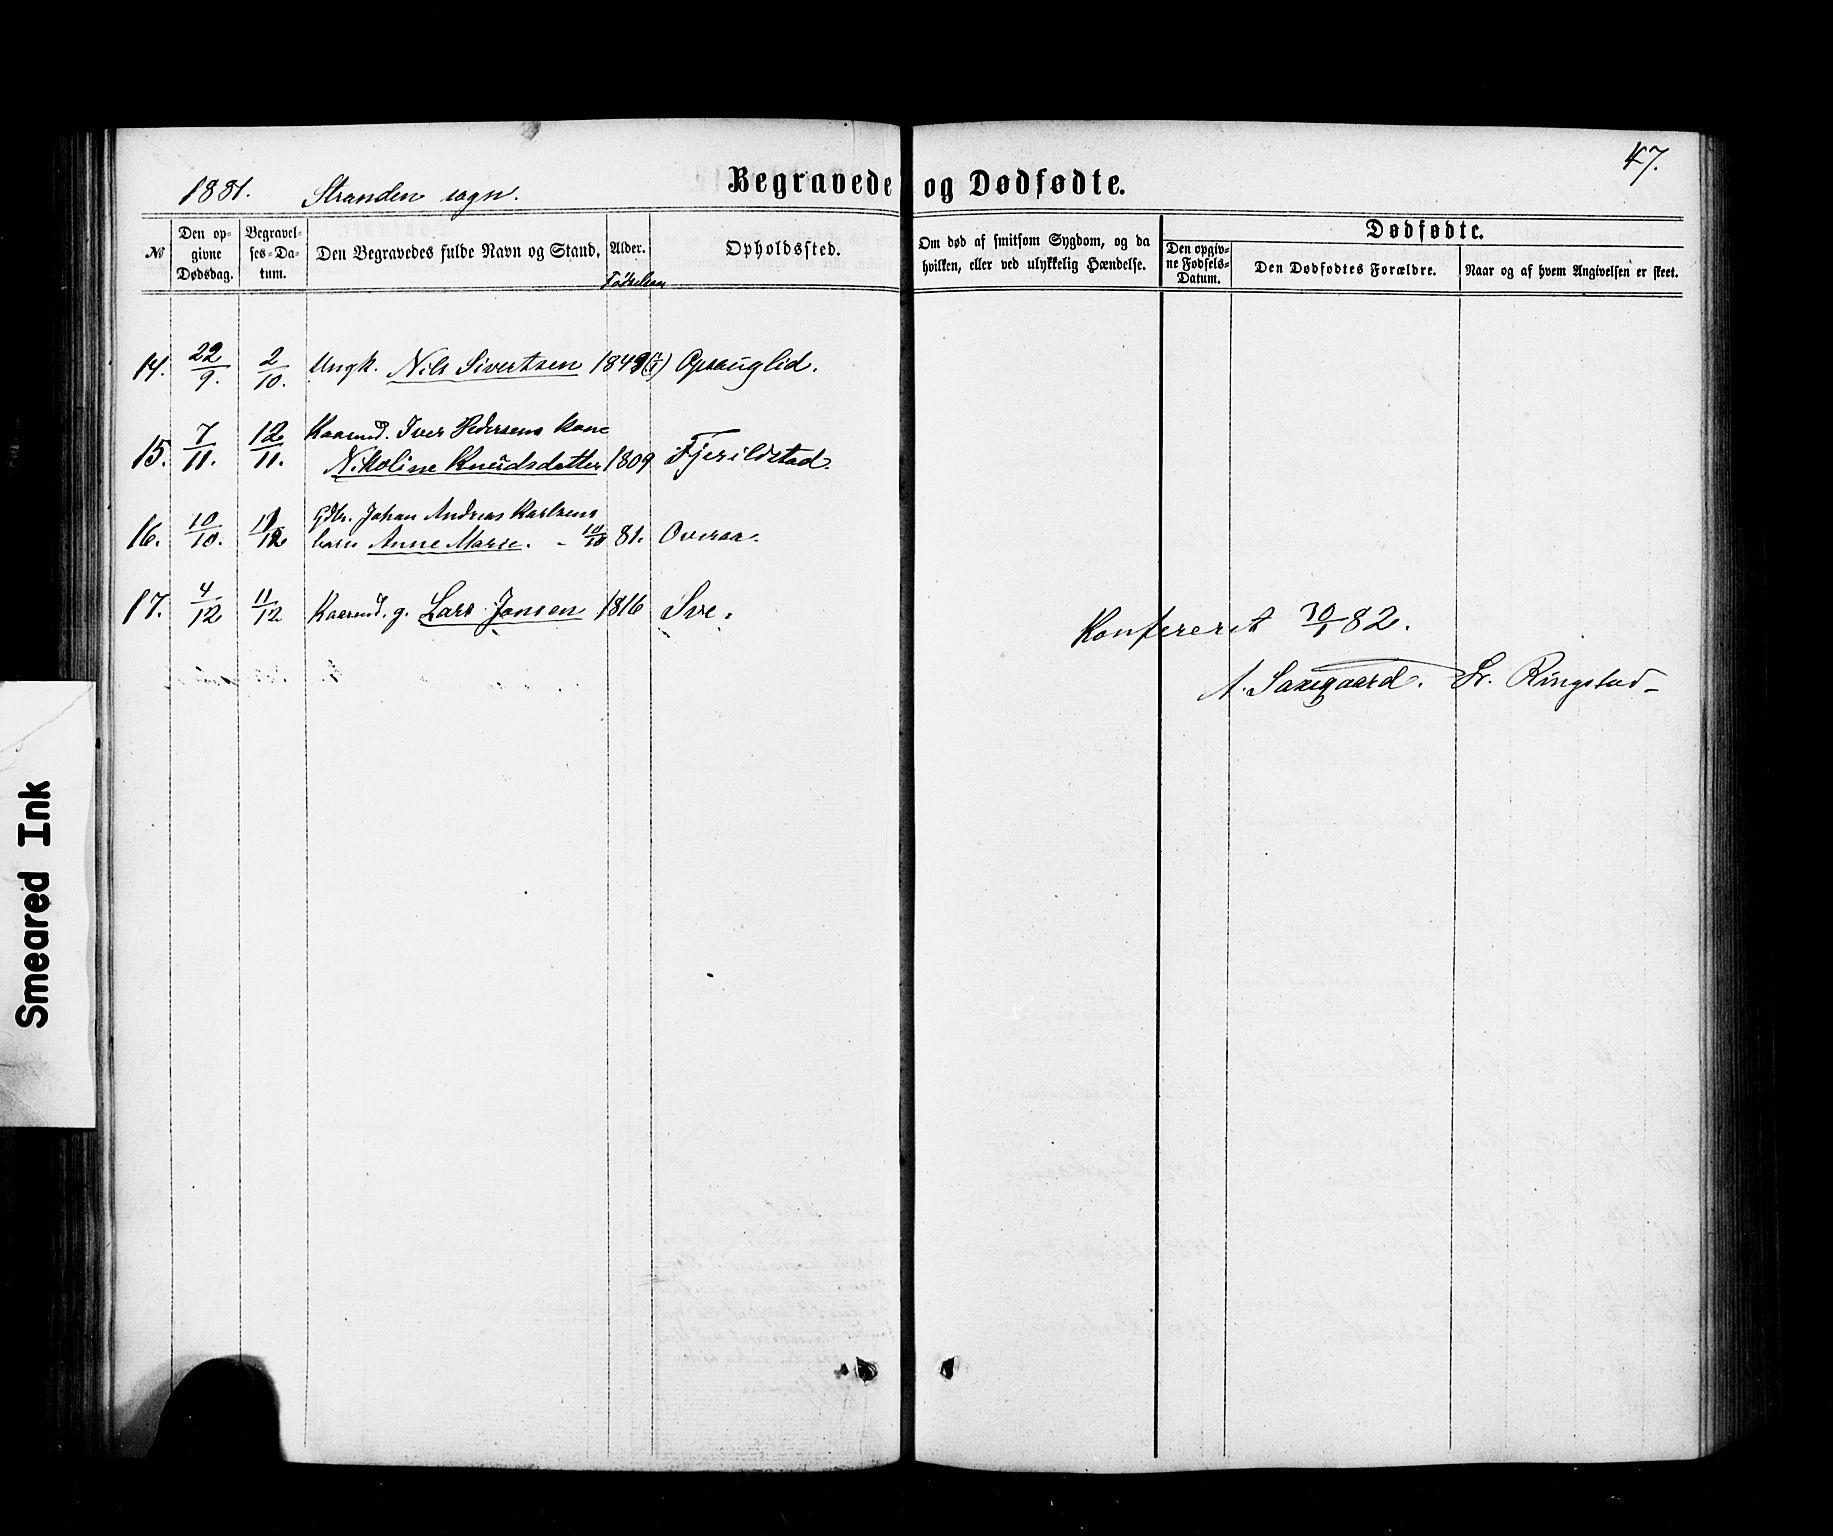 47.
1881. Stranden sogn.
Begravede og Dødfødte.
No
Den opgivne Dødsdag.
Begravelses-Datum.
Den Begravedes fulde Navn og Stand.
Alder.
Fødselsaar
Opholdssted.
Om død af smitsom Sygdom, og da hvilken, eller ved ulykkelig Hændelse.
Dødfødte.
Den opgivne Fødsels-Datum.
Den Dødfødtes Forældre.
Naar og af hvem Angivelsen er skeet.
14. 22/9. 2/10. Ungk. Nils Sivertsen 1849 Opsauglid.
15. 7/11. 12/11. Kaarmd. Iver Pedersens kone
Nikoline Knudsdatter 1809 Fjerildstad.
16. 10/10. 11/12 Gdbr. Johan Andreas Karlsens
barn Anne Marie. - 10/10 81. Overaa.
17. 4/12 11/12 Kaarmd. g. Lars Jonsen 1816 Sve.
Konfereret 30/1 82.
A. Saxegaard. Sr. Ringstad
Smeared Ink